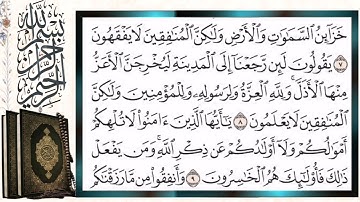 بسم الله الرحمن الرحيم
خَزَآئِنُ ٱلسَّمَٰوَٰتِ وَٱلْأَرْضِ وَلَٰكِنَّ ٱلْمُنَٰفِقِينَ لَا يَفْقَهُونَ
٧ يَقُولُونَ لَئِن رَّجَعْنَآ إِلَى ٱلْمَدِينَةِ لَيُخْرِجَنَّ ٱلْأَعَزُّ
مِنْهَا ٱلْأَذَلَّ ۚ وَلِلَّهِ ٱلْعِزَّةُ وَلِرَسُولِهِۦ وَلِلْمُؤْمِنِينَ وَلَٰكِنَّ
ٱلْمُنَٰفِقِينَ لَا يَعْلَمُونَ ٨ يَٰٓأَيُّهَا ٱلَّذِينَ ءَامَنُوا۟ لَا تُلْهِكُمْ
أَمْوَٰلُكُمْ وَلَآ أَوْلَٰدُكُمْ عَن ذِكْرِ ٱللَّهِ ۚ وَمَن يَفْعَلْ
ذَٰلِكَ فَأُو۟لَٰٓئِكَ هُمُ ٱلْخَٰسِرُونَ ٩ وَأَنفِقُوا۟ مِن مَّا رَزَقْنَٰكُم